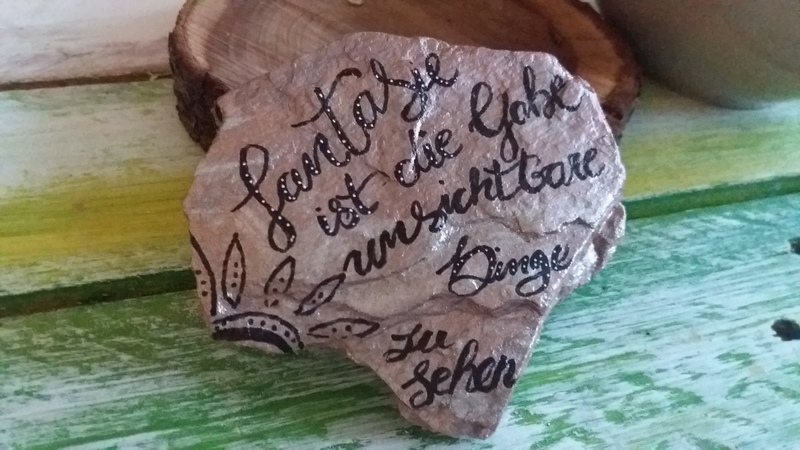 fantasie
ist die Gabe
unsichtbare
Dinge
zu
sehen